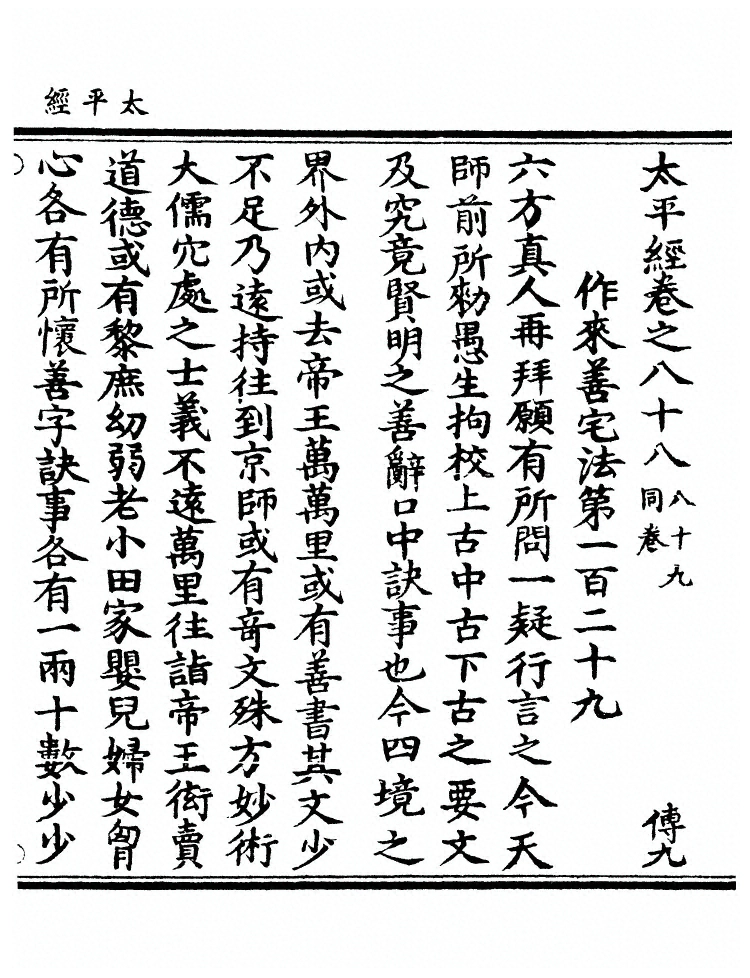 太平經
太平經卷之八十八 八十九同卷 傅九
作來善宅法第一百二十九
六方真人再拜願有所問一疑行言之今天
師前所勑愚生拘校上古中古下古之要文
及究竟賢明之善辭口中訣事也今四境之
界外內或去帝王萬萬里或有善書其文少
不足乃遠持往到京師或有奇文殊方妙術
大儒穴處之士義不遠萬里往詣帝王衒賣
道德或有黎庶幼弱老小田家嬰兒婦女胷
心各有所懷善字訣事各有一兩十數少少